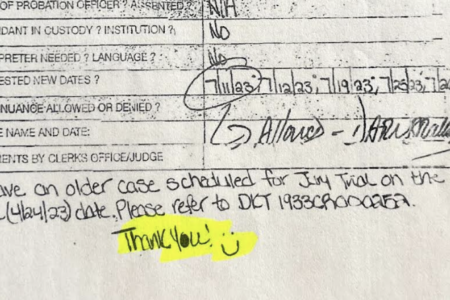 OF PROBATION OFFICER ? ASSENTED ? N/A
DANT IN CUSTODY ? INSTITUTION ? NO
PRETER NEEDED ? LANGUAGE ? No
ESTED NEW DATES ? 7/11/23; 7/12/23; 7/19/23; 7/25/23; 7/2
NUANCE ALLOWED OR DENIED ?
Allowed -
E NAME AND DATE:
ENTS BY CLERKS OFFICE/JUDGE
ave an older case scheduled for Jury Trial on the
(4/24/23) date. Please refer to DKT 1933CR000257.
Thank You! :)